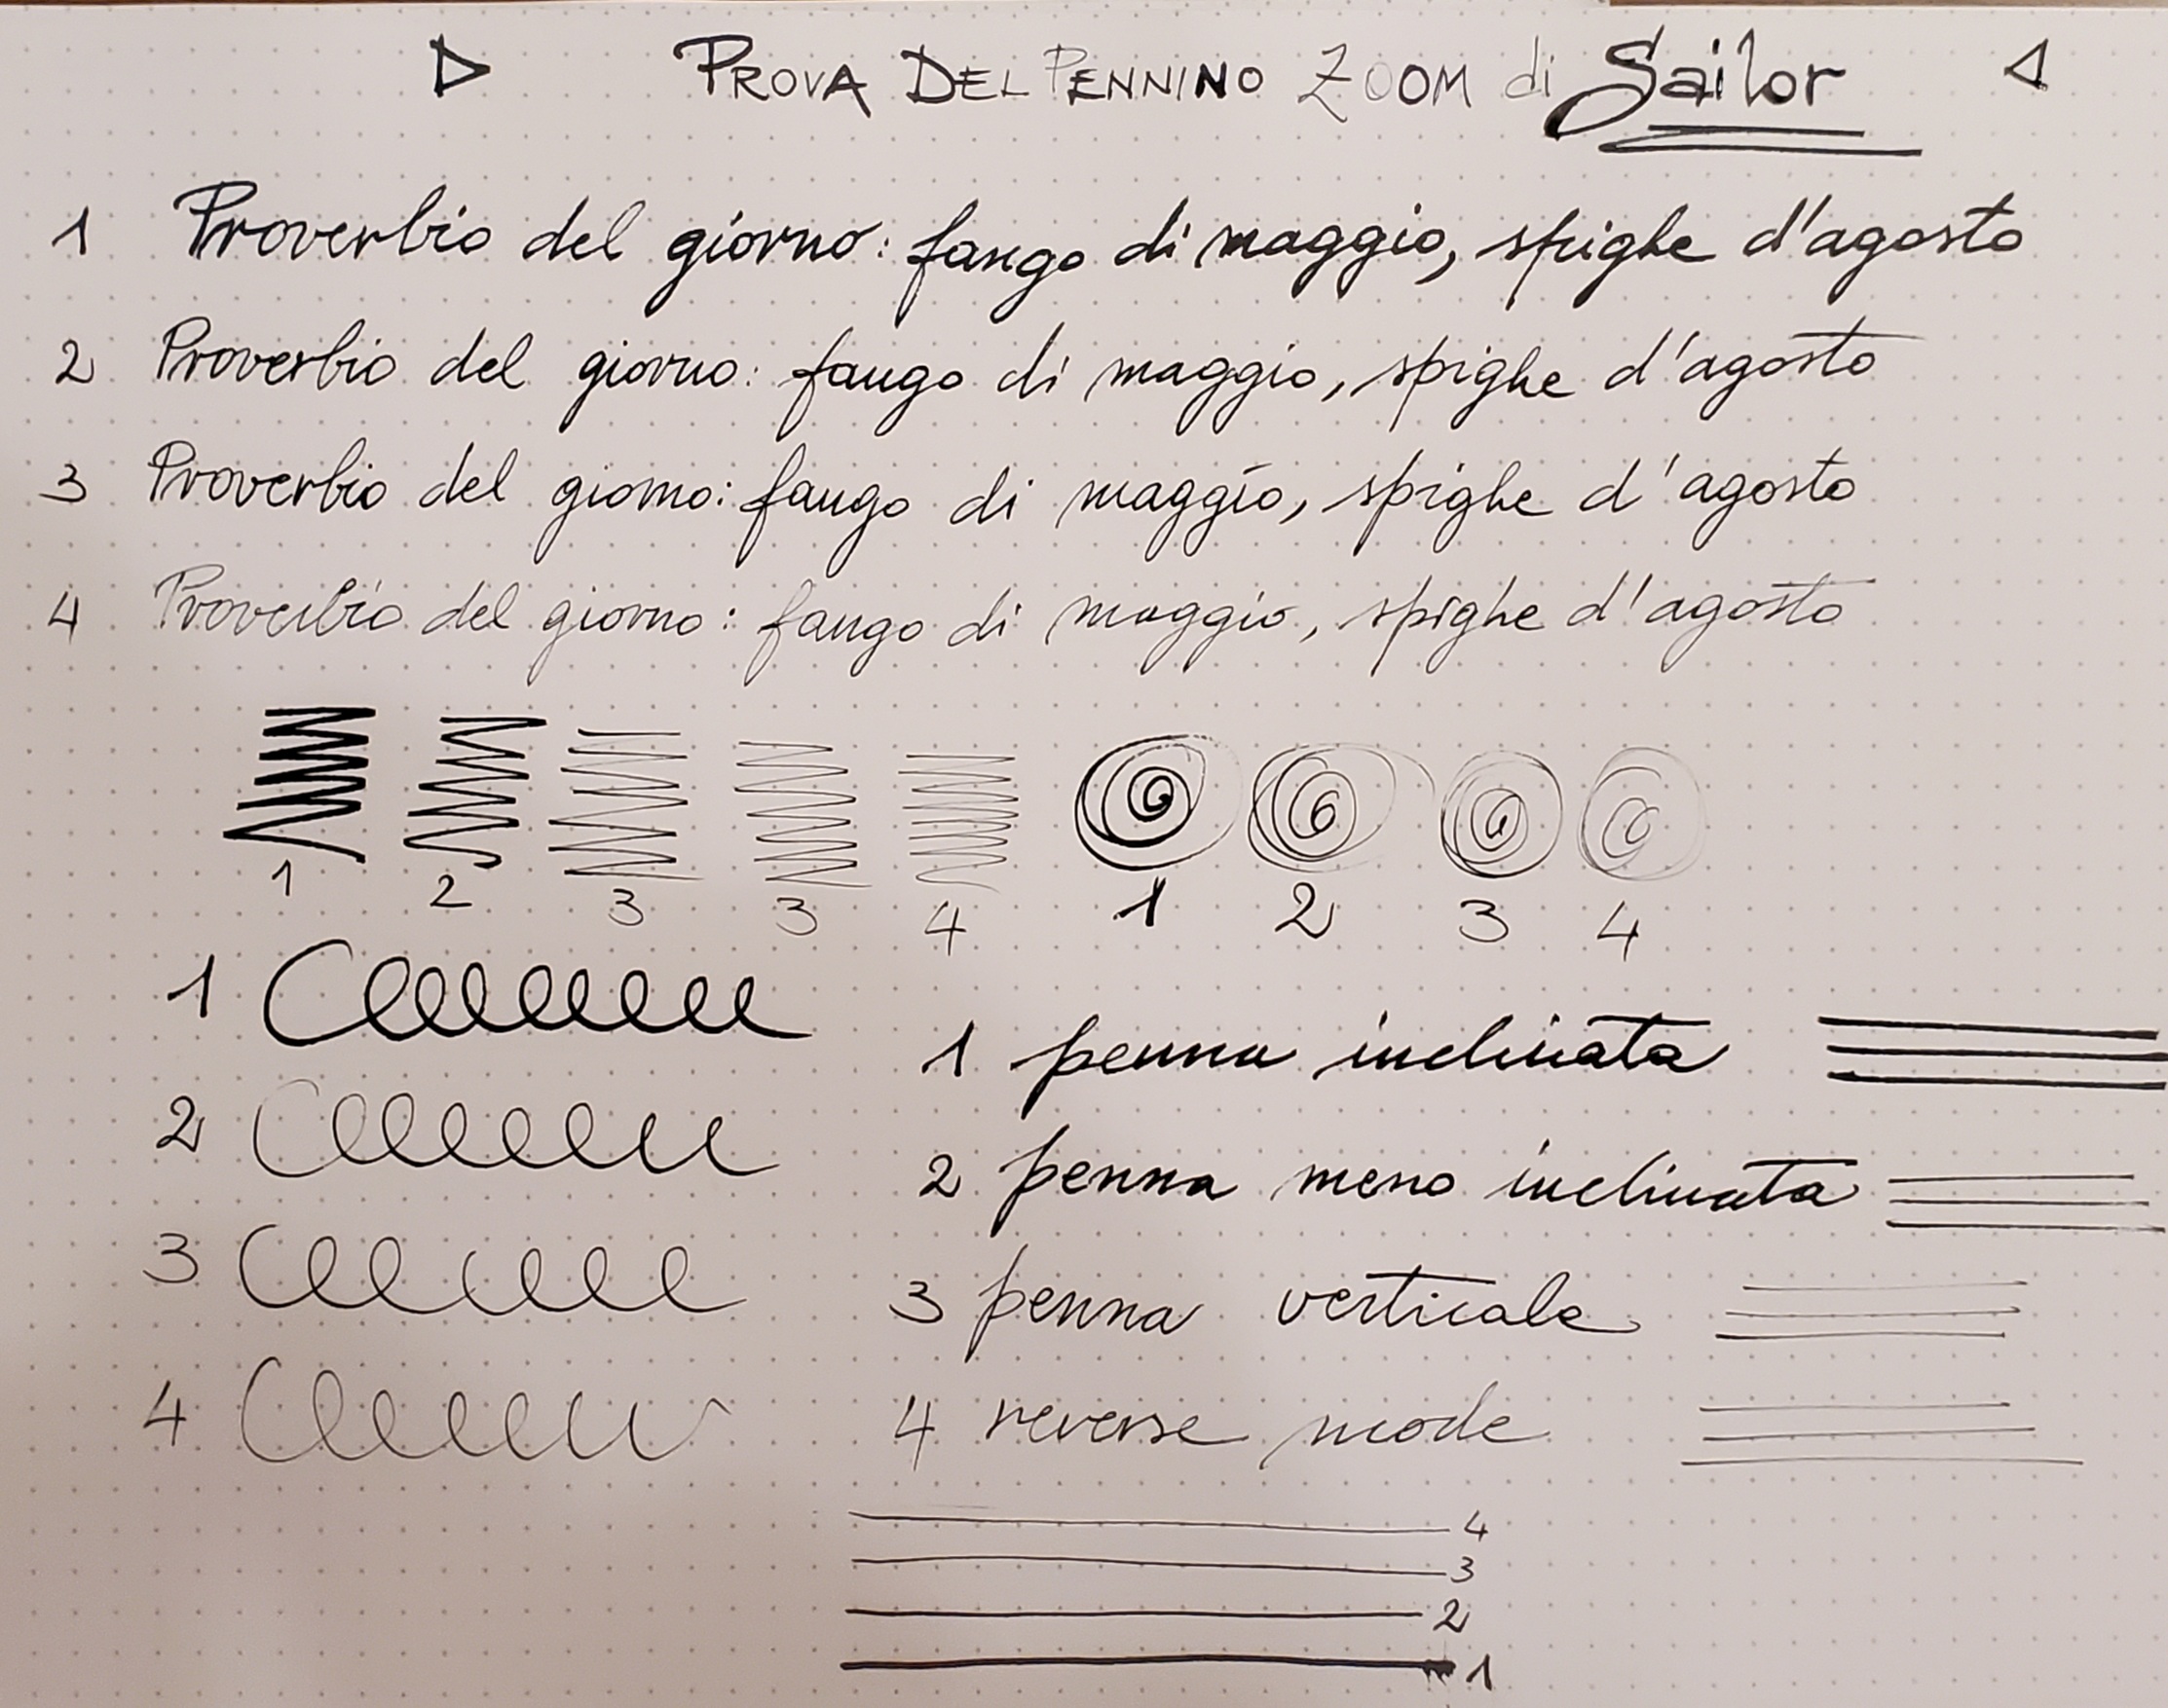 PROVA DEL PENNINO ZOOM di Sailor
1 Proverbio del giorno: fango di maggio, spighe d'agosto
2 Proverbio del giorno: fango di maggio, spighe d'agosto
3 Proverbio del giorno: fango di maggio, spighe d'agosto
4 Proverbio del giorno: fango di maggio, spighe d'agosto
1 2 3 3 4 1 2 3 4
1
2
3
4
1 penna inclinata
2 penna meno inclinata
3 penna verticale
4 reverse mode
4
3
2
1